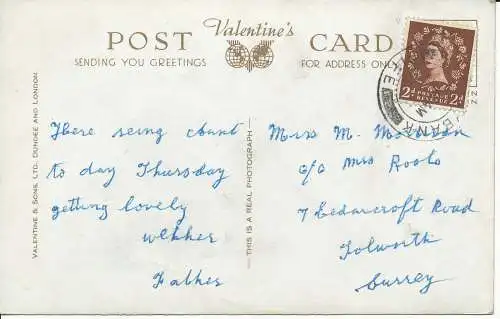 Valentine's
POST CARD
SENDING YOU GREETINGS
FOR ADDRESS ONLY
VALENTINE & SONS, LTD., DUNDEE AND LONDON
THIS IS A REAL PHOTOGRAPH
2d POSTAGE REVENUE 2d
BANK
to day Thursday
getting lovely
wether
Father
Miss M.
c/o Mrs Roots
7 Cedarcroft Road
Tolworth
Surrey